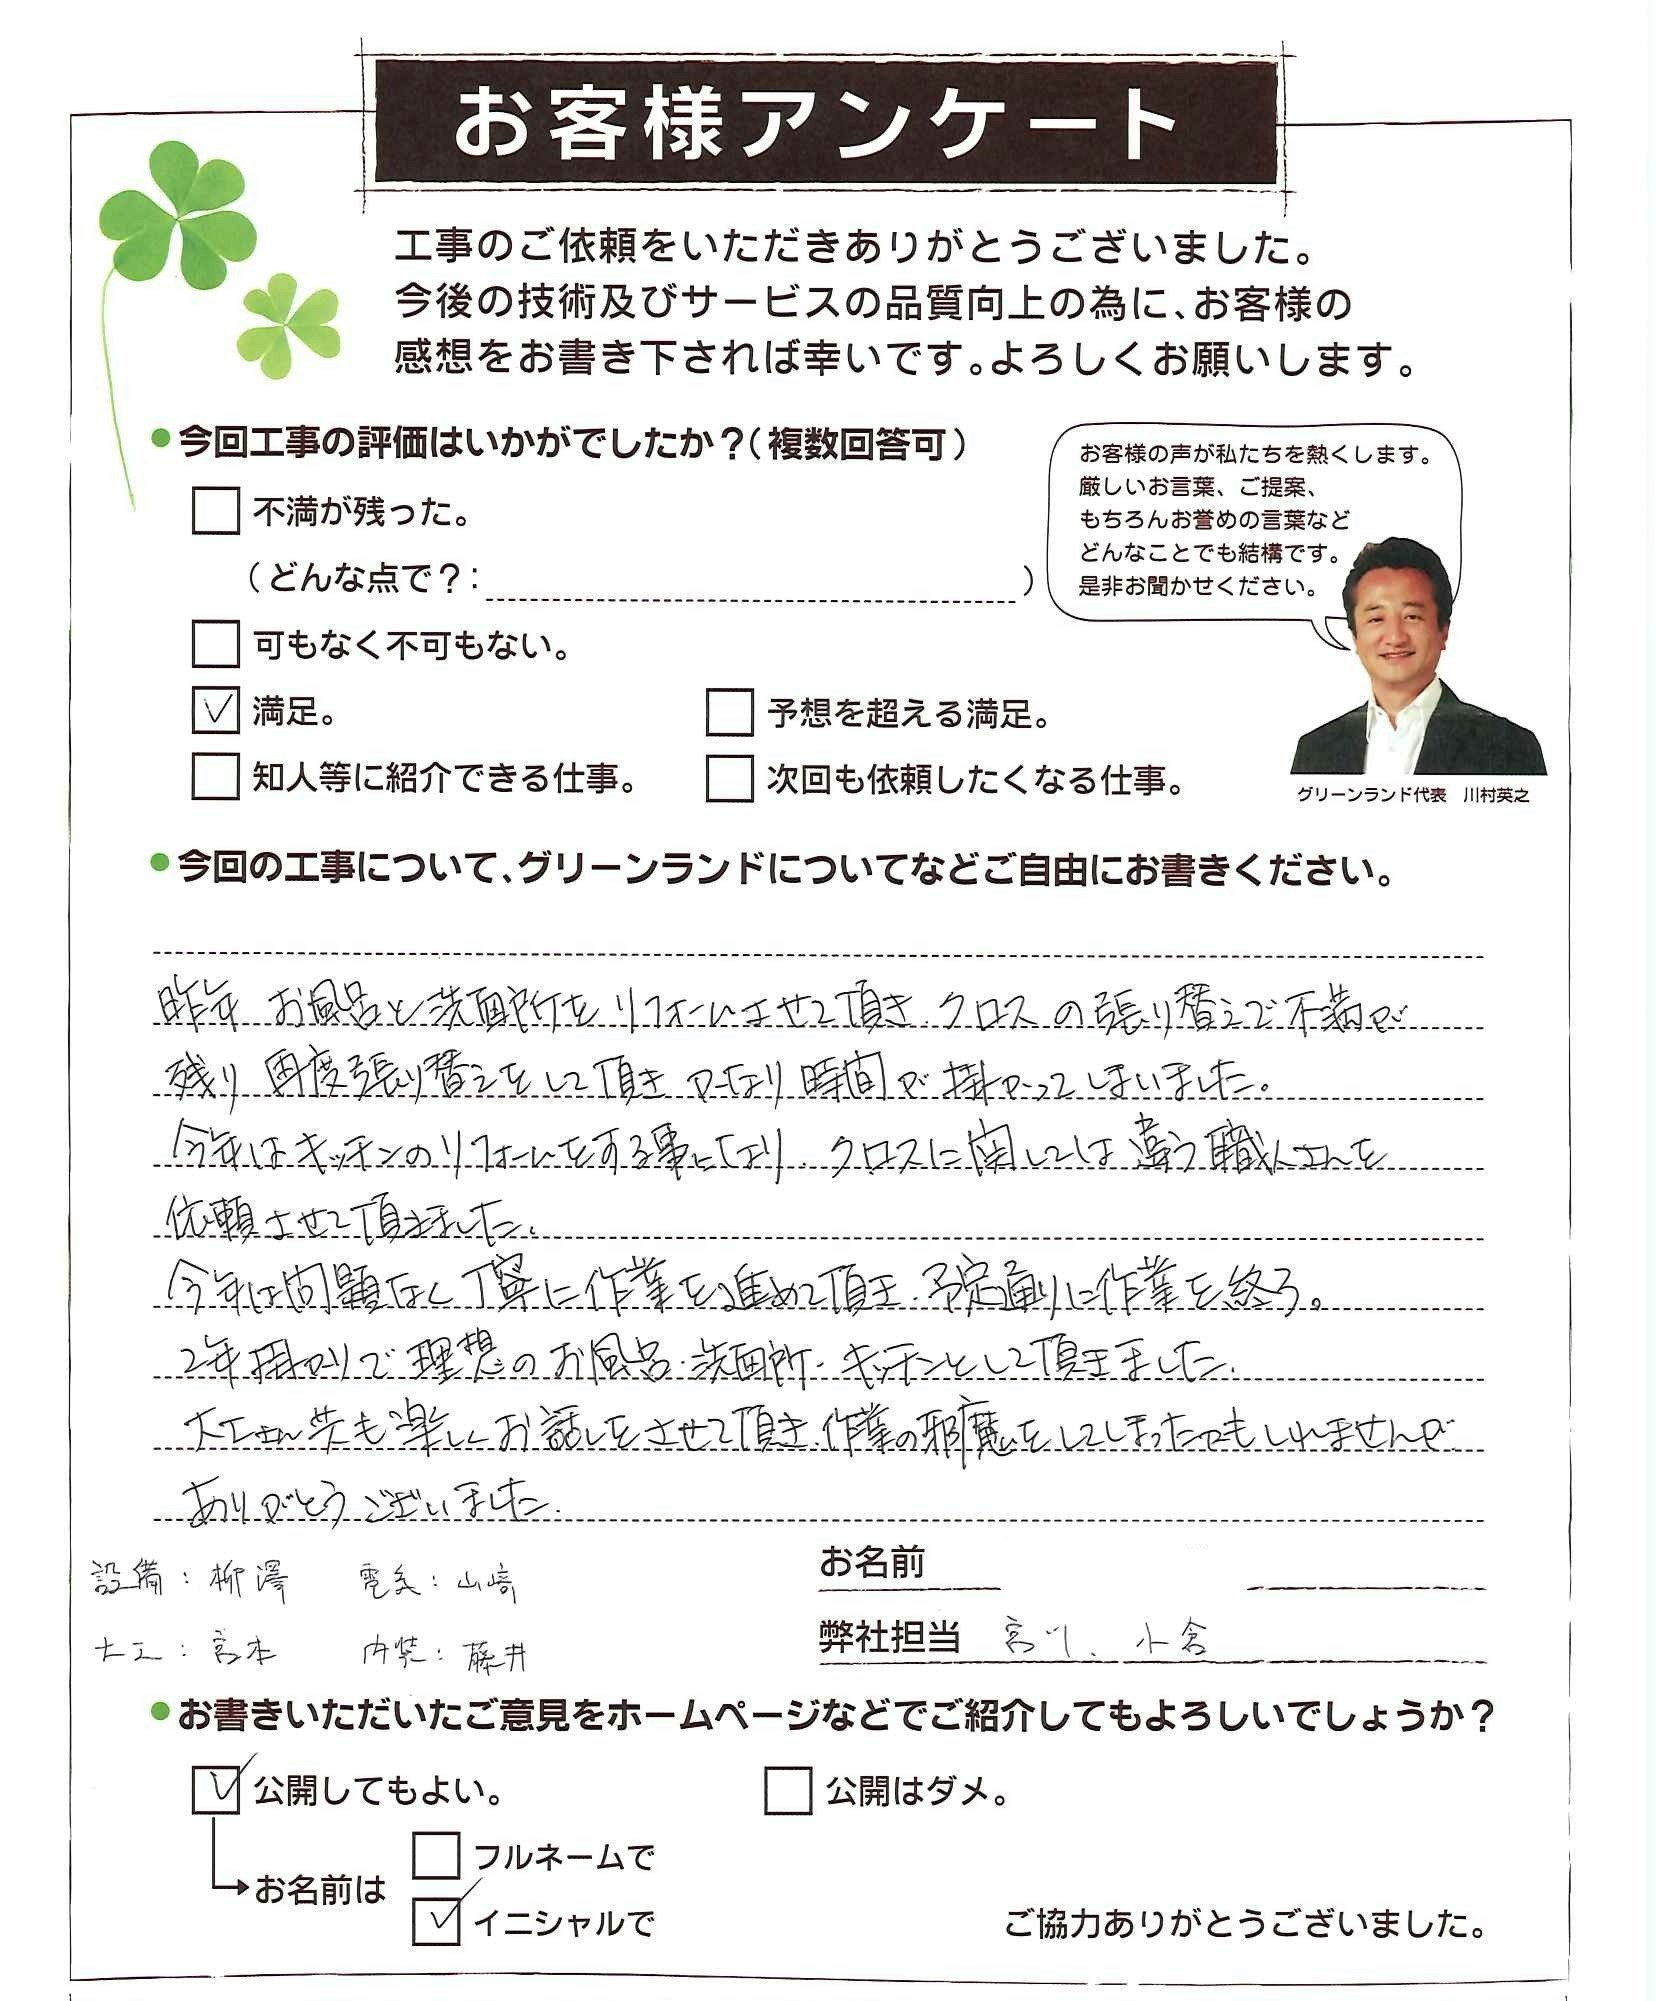 お客様アンケート
工事のご依頼をいただきありがとうございました。
今後の技術及びサービスの品質向上の為に、お客様の
感想をお書き下されば幸いです。よろしくお願いします。
●今回工事の評価はいかがでしたか？（複数回答可）
不満が残った。
（どんな点で？：　　　）
可もなく不可もない。
満足。
予想を超える満足。
知人等に紹介できる仕事。
次回も依頼したくなる仕事。
お客様の声が私たちを熱くします。
厳しいお言葉、ご提案、
もちろんお誉めの言葉など
どんなことでも結構です。
是非お聞かせください。
グリーンランド代表　川村英之
●今回の工事について、グリーンランドについてなどご自由にお書きください。
昨年 お風呂と洗面所をリフォームさせて頂き、クロスの張り替えで不満が
残り 再度張り替えをして頂き かなり時間が掛かってしまいました。
今年はキッチンのリフォームをする事になり、クロスに関しては違う職人さんを
依頼させて頂きました。
今年は問題なく丁寧に作業を進めて頂き、予定通りに作業を終る。
2年掛かりで理想のお風呂・洗面所・キッチンとして頂きました。
大工さん共も楽しくお話しをさせて頂き、作業の邪魔をしてしまったかもしれませんが
ありがとうございました。
設備：柳澤　電気：山﨑
大工：宮本　内装：藤井
お名前
弊社担当　宮川、小倉
●お書きいただいたご意見をホームページなどでご紹介してもよろしいでしょうか？
公開してもよい。
公開はダメ。
お名前は
フルネームで
イニシャルで
ご協力ありがとうございました。